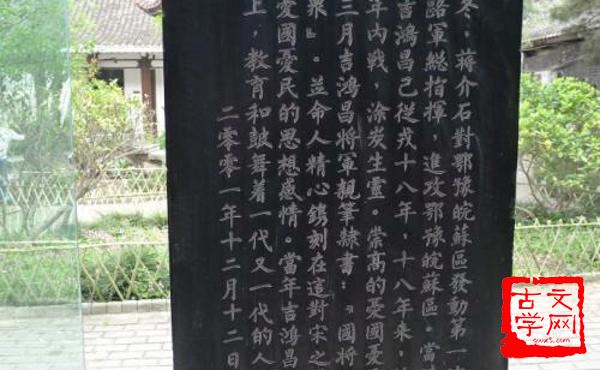 冬，蔣介石對鄂豫皖蘇區發動第一
路軍總指揮，進攻鄂豫皖蘇區。當
吉鴻昌已從戎十八年，十八年來，
年内戰，涂炭生靈。崇高的憂國憂
三月吉鴻昌將軍親筆隸書：『國將
衆』。并命人精心鐫刻在這對宋之
愛國憂民的思想感情。當年吉鴻昌
上，教育和鼓舞着一代又一代的人
二零零一年十二月十二日
古文
学网
gwx5.com